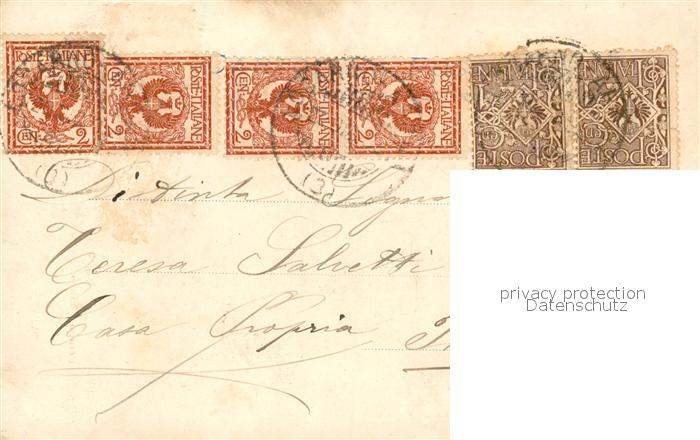 POSTE ITALIANE CEN 2
POSTE ITALIANE CEN 2
POSTE ITALIANE CEN 2
POSTE ITALIANE CEN 2
POSTE ITALIANE 1
POSTE ITALIANE 1
Distinta Signo
Teresa Salvetti
Casa Propria
privacy protection
Datenschutz